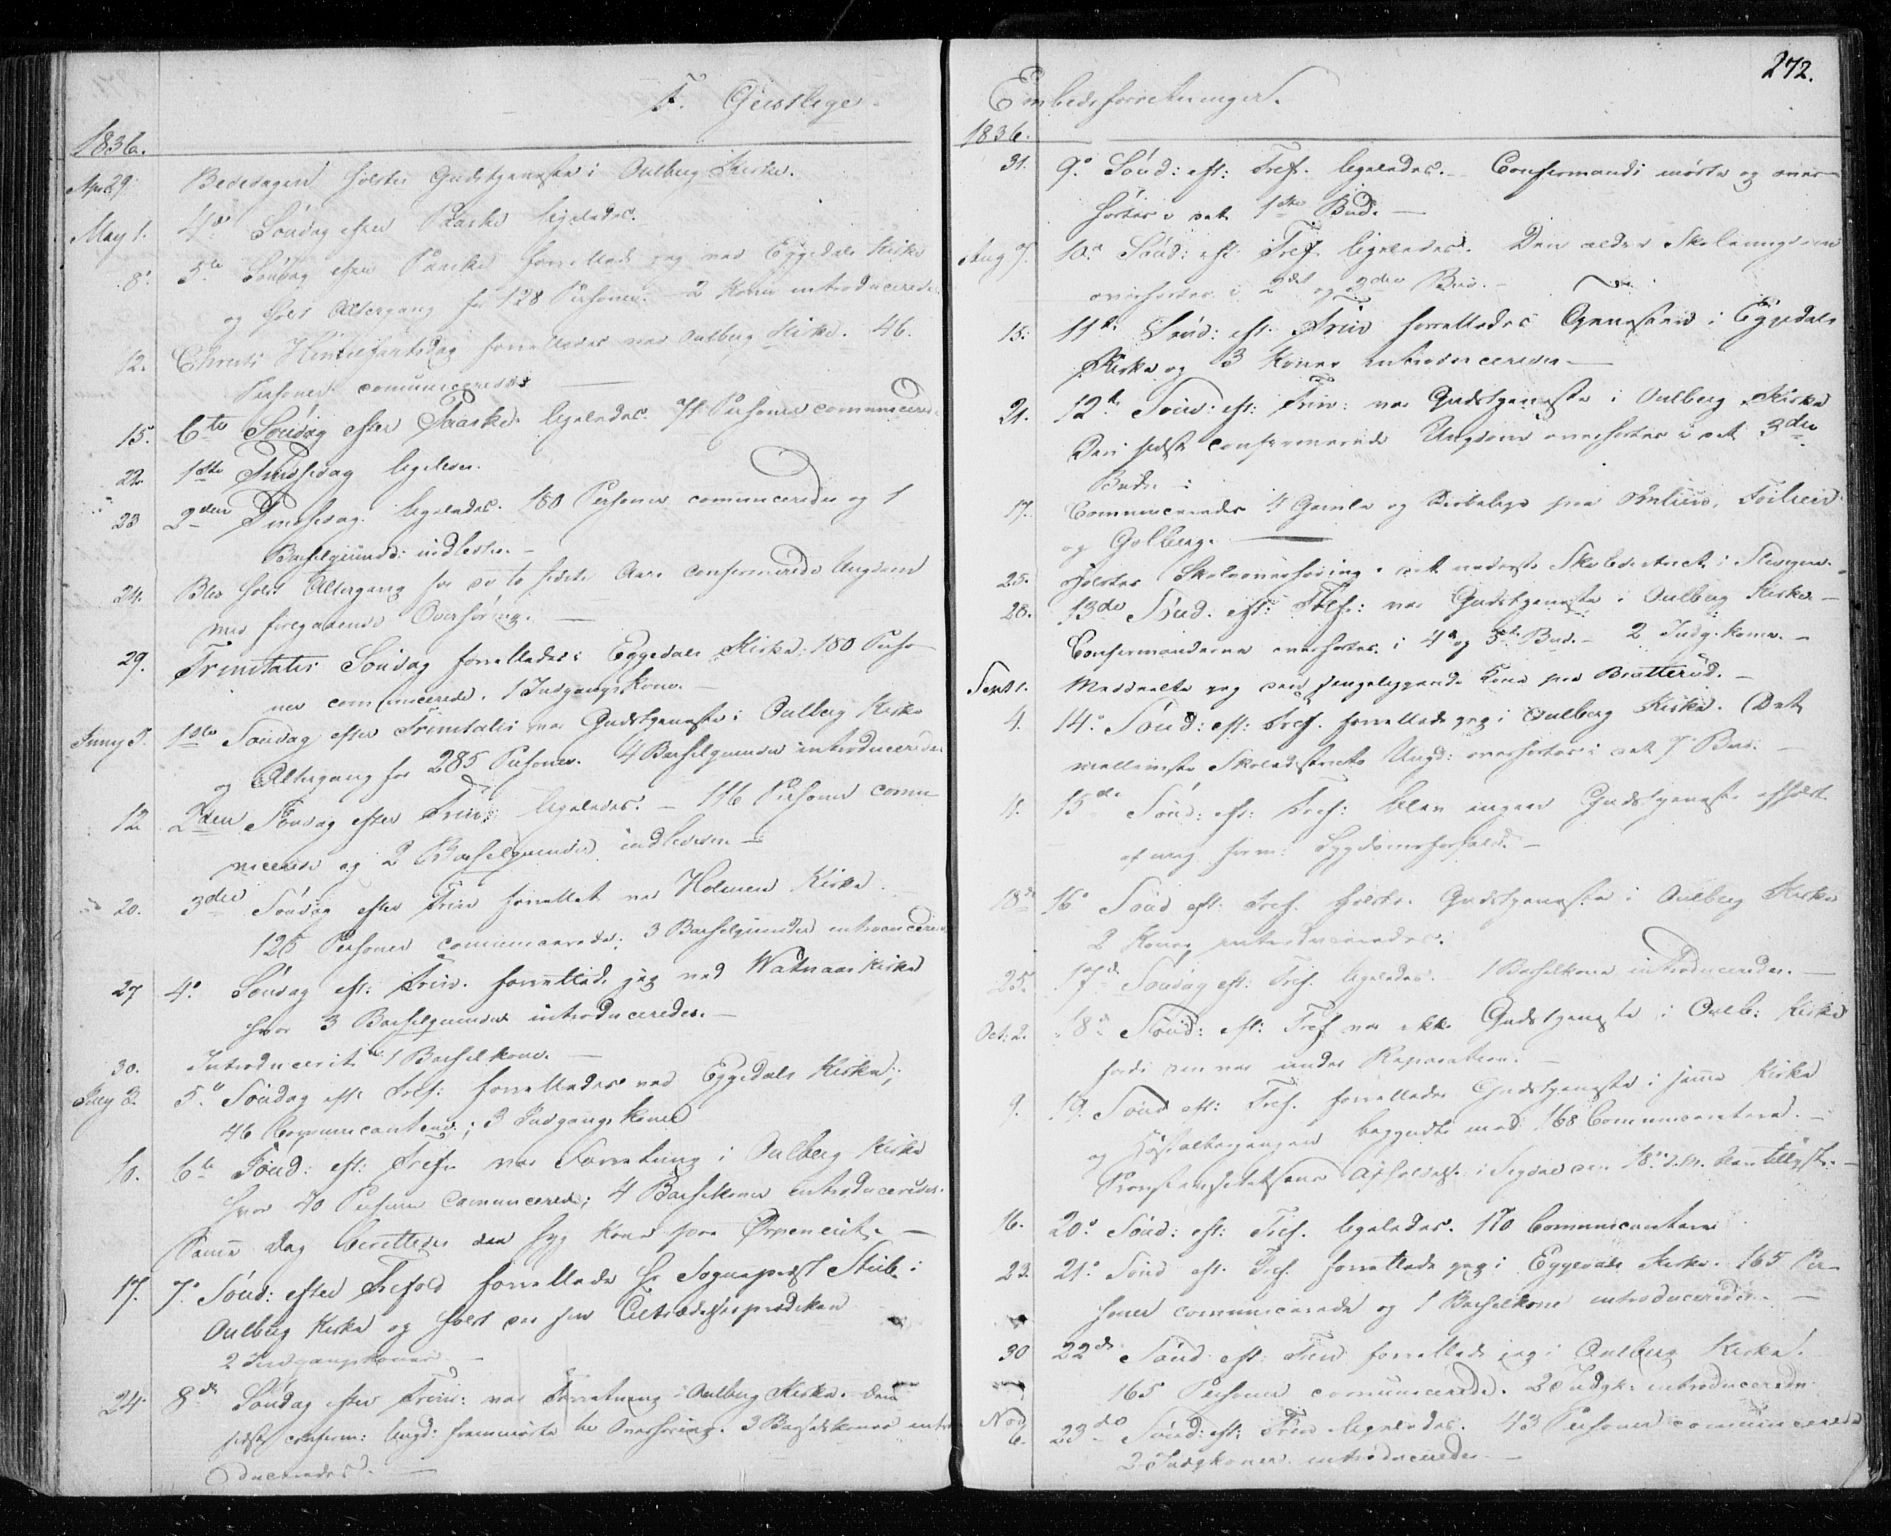 F. Geistlige
1836.
Apr 29. Bededagen holdtes Gudstjeneste i Oulberg Kirke.
May 1. 4de Søndag efter Paaske ligeledes.
8. 5te Søndag efter Paaske forrettede jeg ved Eggedals Kirke
og holdt Altergang for 128 Personer. 2 Koner introduceredes
12. Christi Himmelfartsdag forrettedes ved Oulberg Kirke. 46.
Personer comuniceredes
15. 6te Søndag efter Paaske ligeledes. 71 Personer comunicerede
22. 1ste Pindsedag ligeledes.
23 2den Pindsedag ligeledes. 180 Personer comunicerede og 1
Barselquinde indledtes.
24. Blev holdt Altergang for de to sidste Aars confirmerede Ungdom
med foregaaende Overhøring.
29. Trinitatis Søndag forrettedes i Eggedals Kirke. 180 Perso-
ner communicerede. 1 Indgangskone.
Juny 5. 1ste Søndag efter Trinitatis var Gudstjeneste i Oulberg Kirke
og Altergang for 285 Personer. 4 Barselquinder introduceredes
12. 2den Søndag efter Trin: ligeledes. 116 Personer comu-
nicerede og 2 Barselquinder indlededes
20. 3die Søndag efter Trin forrettet ved Holmen Kirke.
125 Personer comunicerede; 3 Barselquinder introducered
27 4de Søndag eft: Trin. forrettede jeg ved Watnaas Kirke
hvor 3 Barselquinder introduceredes.
30. Introducerit 1 Barselkone.
July 3. 5te Søndag eft: Tref: forrettedes ved Eggedals Kirke;
46 Communicantere; 3 Indgangskoner
10. 6te Sønd: eft: Tref. var Forretning i Oulberg Kirke
hvor 70 Personer comunicerede; 4 Barselkoner introduceredes.
Samme Dag berettedes en syg Kone paa
17. 7de Sønd: efter Trefold forrettede Hr Sognepræst Stub i
Oulberg Kirke og holdt der sin Tiltrædelsesprædiken
2 Indgangskoner
24. 8de Søndag efter Trin: var Forretning i Oulberg Kirke. Den
sidst confirm: Ungd: fremmødte til Overhøring. 3 Barselskoner intro
duceredes.
272.
Embedsforretninger.
1836.
31. 9de Sønd: eft: Tref. ligeledes. Confirmandi mødte og over-
hørtes i det 1ste Bud.
Aug 7. 10de Sønd: eft: Tref. ligeledes. Den ældre Skoleungdom
overhørtes i 2det og 3die Bud.
15. 11te Sønd: eft: Trin forrettedes Tjenesten i Eggedals
Kirke og 3 Koner introduceredes
21. 12te Sønd: eft: Trin: var Gudstjeneste i Oulberg Kirke
Den sidst confirmerede Ungdom overhørtes i det 3die
Bud.
17. Communicerede 4 Gamle og Svagelige paa
og Golberg.
25. Holdtes Skoleoverhøring i det nederste Skoledistrict i
28. 13de Sønd. eft: Tref: var Gudstjeneste i Oulberg Kirke
Confirmanderne overhørtes i 4de og 5te Bud. 2 Indg.koner.
Septr 1. Meddeelte jeg den sengeliggende Kone paa Bratterud.
4. 14de Sønd: eft: Tref. forrettede jeg i Oulberg Kirke. Det
mellemste Skoledistricts Ungd: overhørtes i det 7de Bud.
11. 15de Sønd: eft: Tref: blev ingen Gudstjeneste afholdt
af mig form: Sygdomsforfald.
18de 16de Sønd eft: Tref. holdtes Gudstjeneste i Oulberg Kirke
2 Koner introduceredes.
25. 17de Søndag eft: Tref. ligeledes. 1 Barselkone introduceredes.
Oct: 2. 18de Sønd: eft: Tref var ikke Gudstjeneste i Oulb: Kirke
fordi den var under Reparation.
9. 19. Sønd eft: Tref. forrettedes Gudstjeneste i samme Kirke
og Høstaltergangen begyndte med 168 Communicantere.
Afholdelse i Sigdal den 18de d.M. blev tillyst.
16. 20de Sønd: eft: Tref. ligeledes. 170 Communicantere
23. 21de Sønd eft. Tref. forrettede jeg i Eggedals Kirke. 165 Per-
soner communicerede og 1 Barselkone introduceredes.
30 22de Sønd eft: Trin forrettede jeg i Oulberg Kirke.
165 Personer comunicerede. 2 Indgk: introduceredes
Nov 6. 23de Sønd: eft: Trin ligeledes. 43 Personer comunicerede
2 Indgkoner introduceredes